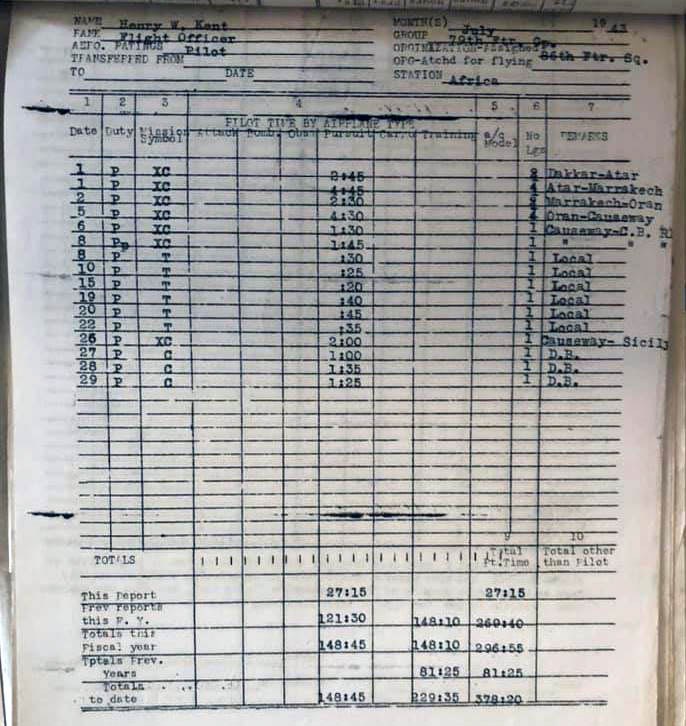 NAME Henry W. Kent MONTH(S) July 1943
RANK Flight Officer GROUP 79th Ftr. Gp.
AERO. RATINGS Pilot ORGINIZATION-Assigned
TRANSFERRED FROM ORG-Atchd for flying 86th Ftr. Sq.
TO DATE STATION Africa
1 2 3 4 5 6 7
PILOT TIME BY AIRPLANE TYPE
Date Duty Mission Symbol Attack Bomb. Obsn Pursuit Cargo Training a/c Model No Lgs REMARKS
1 P XC 2:45 Dakkar-Atar
1 P XC 4:45 4 Atar-Marrakech
2 P XC 2:30 Marrakech-Oran
5 P XC 4:30 4 Oran-Causeway
6 P XC 1:30 1 Causeway-C.B.
8 Pp XC 1:45 1 " " "
8 P T :30 1 Local
10 P T :25 1 Local
15 P T :20 1 Local
19 P T :40 1 Local
20 P T :45 1 Local
22 P T :35 1 Local
26 P XC 2:00 1 Causeway- Sicily
27 P C 1:00 1 D.B.
28 P C 1:35 1 D.B.
29 P C 1:25 1 D.B.
9 10
TOTALS Total Pt.Time Total other than Pilot
This Report 27:15 27:15
Prev reports
this F. Y. 121:30 148:10 269:40
Totals this
Fiscal year 148:45 148:10 296:55
Tptals Prev.
Years 81:25 81:25
Totals
to date 148:45 229:35 378:20